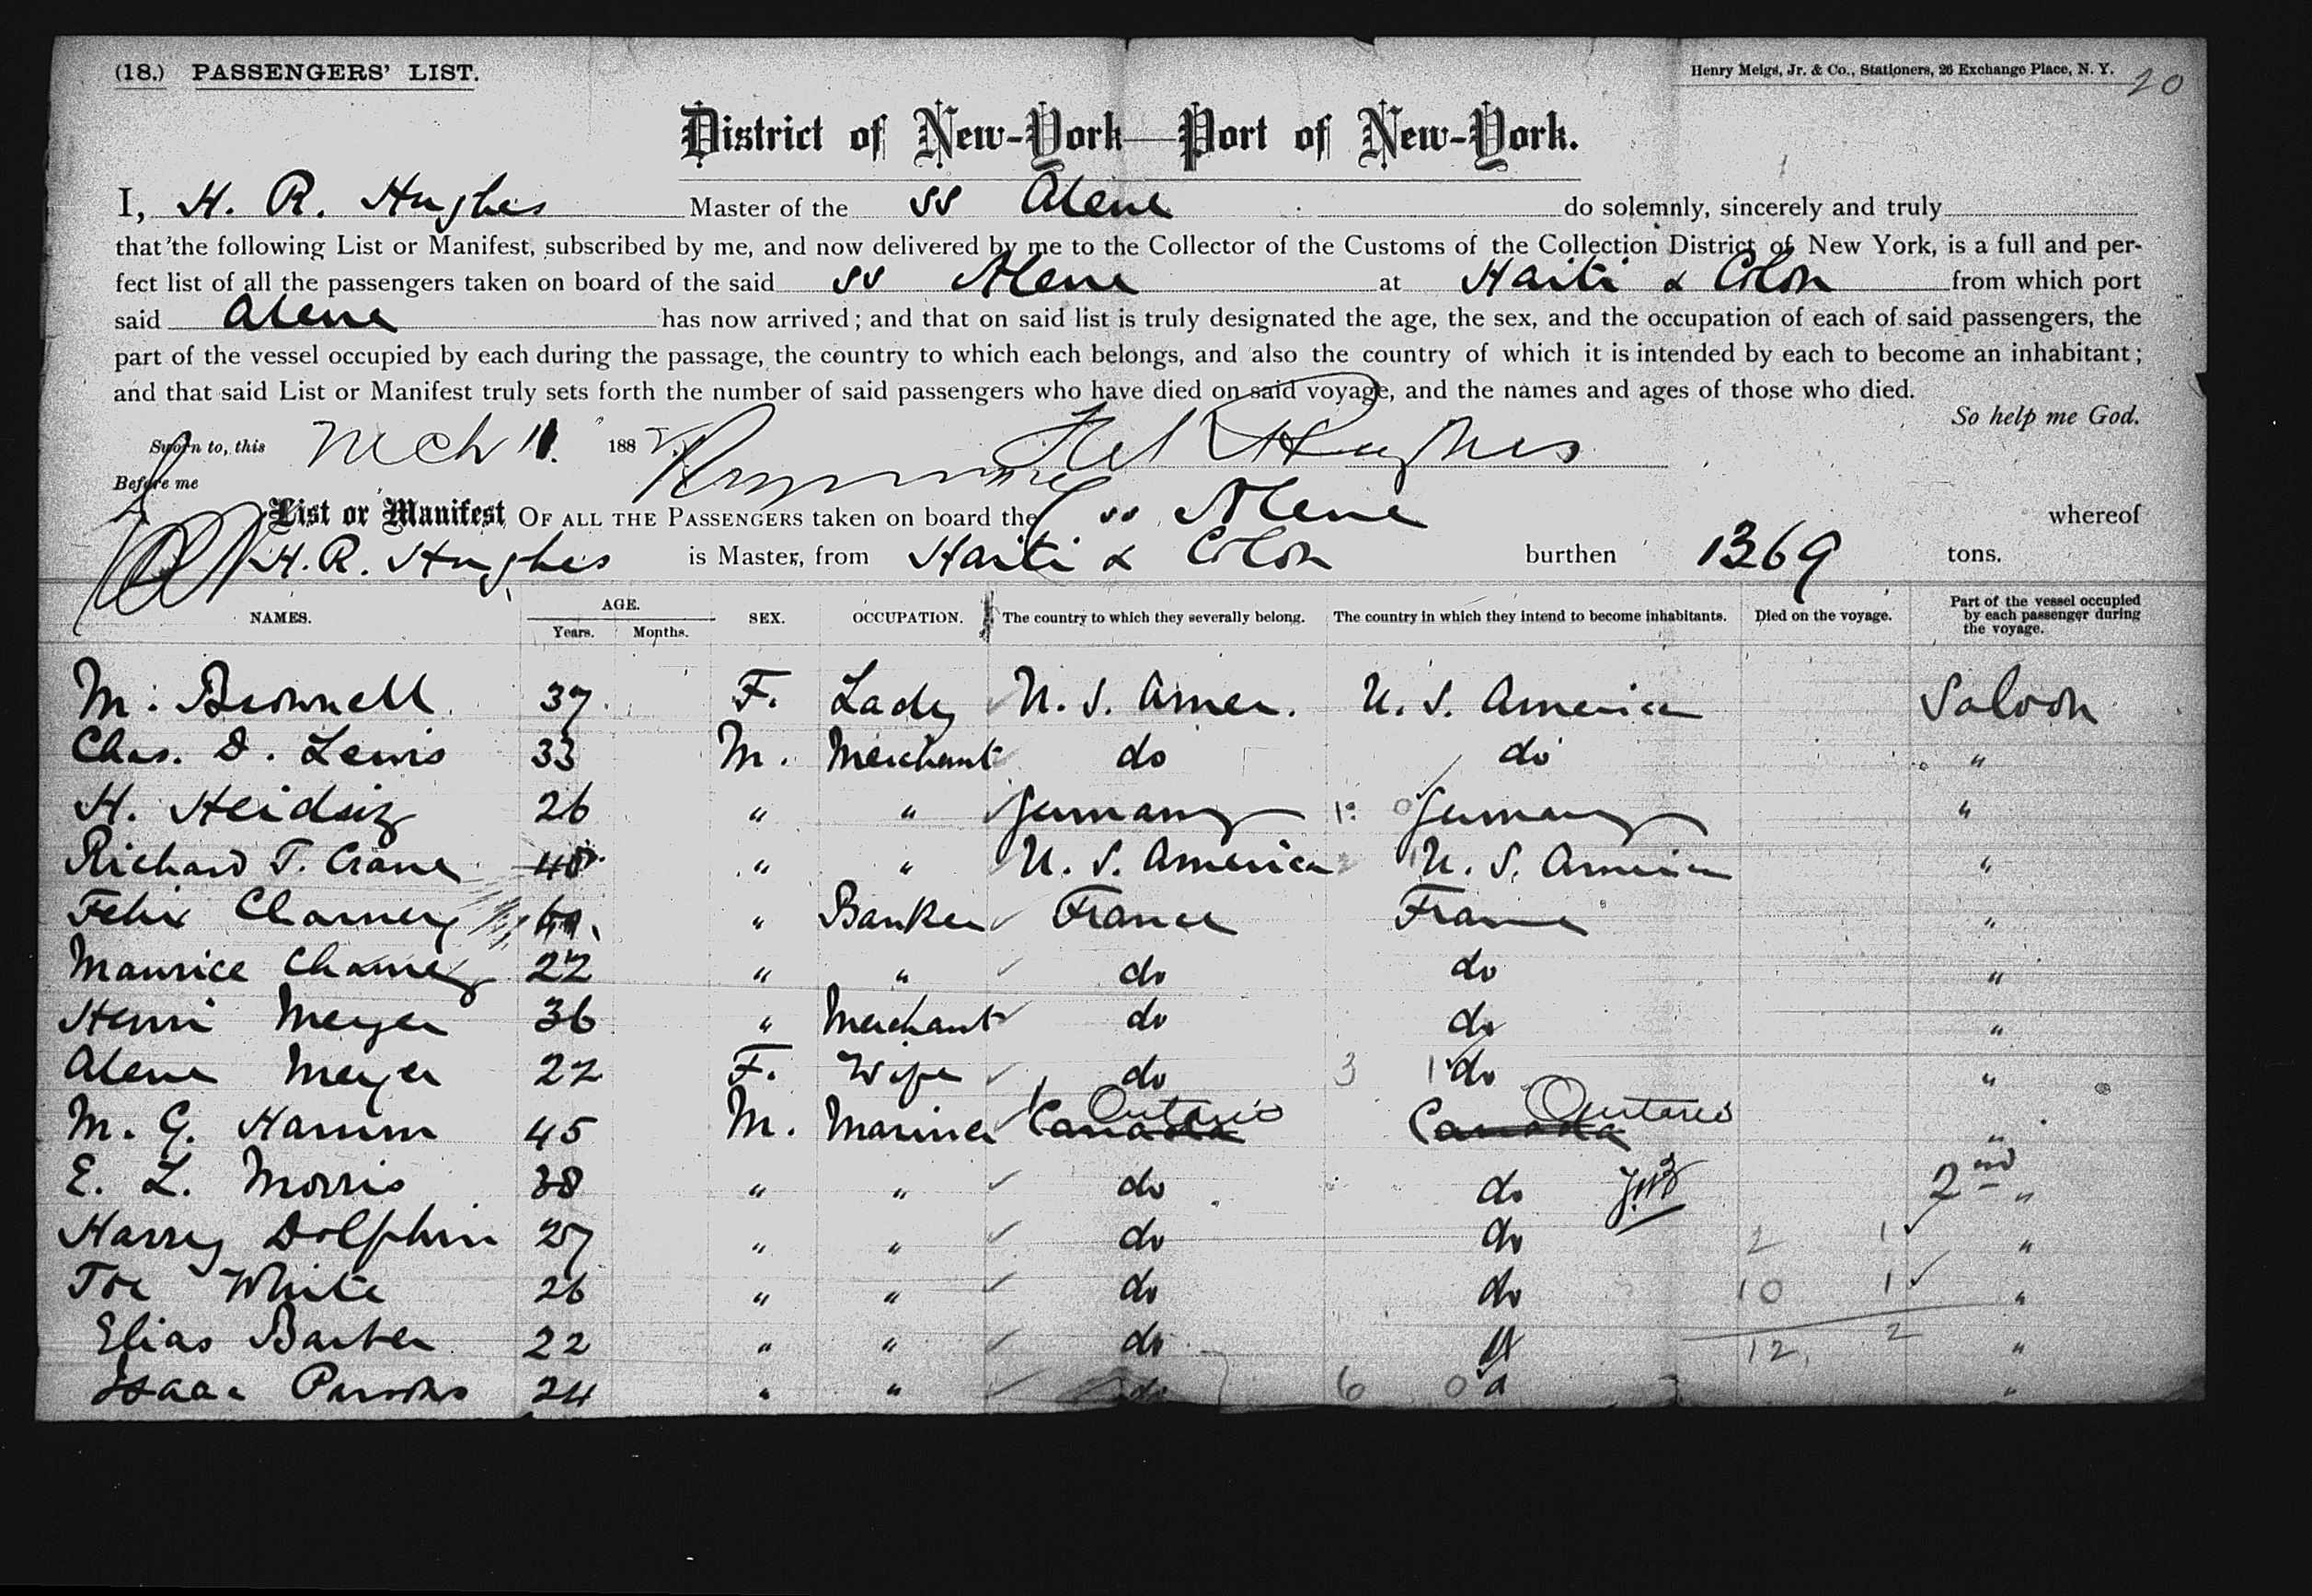 (18.) PASSENGERS' LIST. Henry Meigs, Jr. & Co., Stationers, 26 Exchange Place, N. Y. 20
District of New-York—Port of New-York.
I, H. R. Hughes Master of the SS Alene do solemnly, sincerely and truly
that the following List or Manifest, subscribed by me, and now delivered by me to the Collector of the Customs of the Collection District of New York, is a full and per-
fect list of all the passengers taken on board of the said SS Alene at Haiti & Colon from which port
said Alene has now arrived; and that on said list is truly designated the age, the sex, and the occupation of each of said passengers, the
part of the vessel occupied by each during the passage, the country to which each belongs, and also the country of which it is intended by each to become an inhabitant;
and that said List or Manifest truly sets forth the number of said passengers who have died on said voyage, and the names and ages of those who died.
So help me God.
Sworn to, this Mch 11. 188 Hughes
Before me
List or Manifest OF ALL THE PASSENGERS taken on board the SS Alene whereof
H. R. Hughes is Master, from Haiti & Colon burthen 1369 tons.
NAMES. AGE. Years. Months. SEX. OCCUPATION. The country to which they severally belong. The country in which they intend to become inhabitants. Died on the voyage. Part of the vessel occupied by each passenger during the voyage.
M. Brownell 37 F. Lady U. S. Amer. U. S. America Saloon
Chas. D. Lewis 33 M. Merchant do do "
H. 26 " " Germany 1 0 Germany "
Richard T. Crane 48 " " U. S. America U. S. America "
Felix Charney " Banker France France "
Maurice Charney 22 " " do do "
Henri Meyer 36 " Merchant do do "
Alene Meyer 22 F. Wife do 3 1 do "
M. G. Hamm 45 M. Mariner Canada Ontario Canada Ontario "
E. L. Morris 38 " " do do 2nd "
Harry Dolphin 27 " " do do 2 1 "
Joe White 26 " " do do 10 1 "
Elias Barber 22 " " do 12 2 "
Isaac Parsons 24 " " do 6 0 "